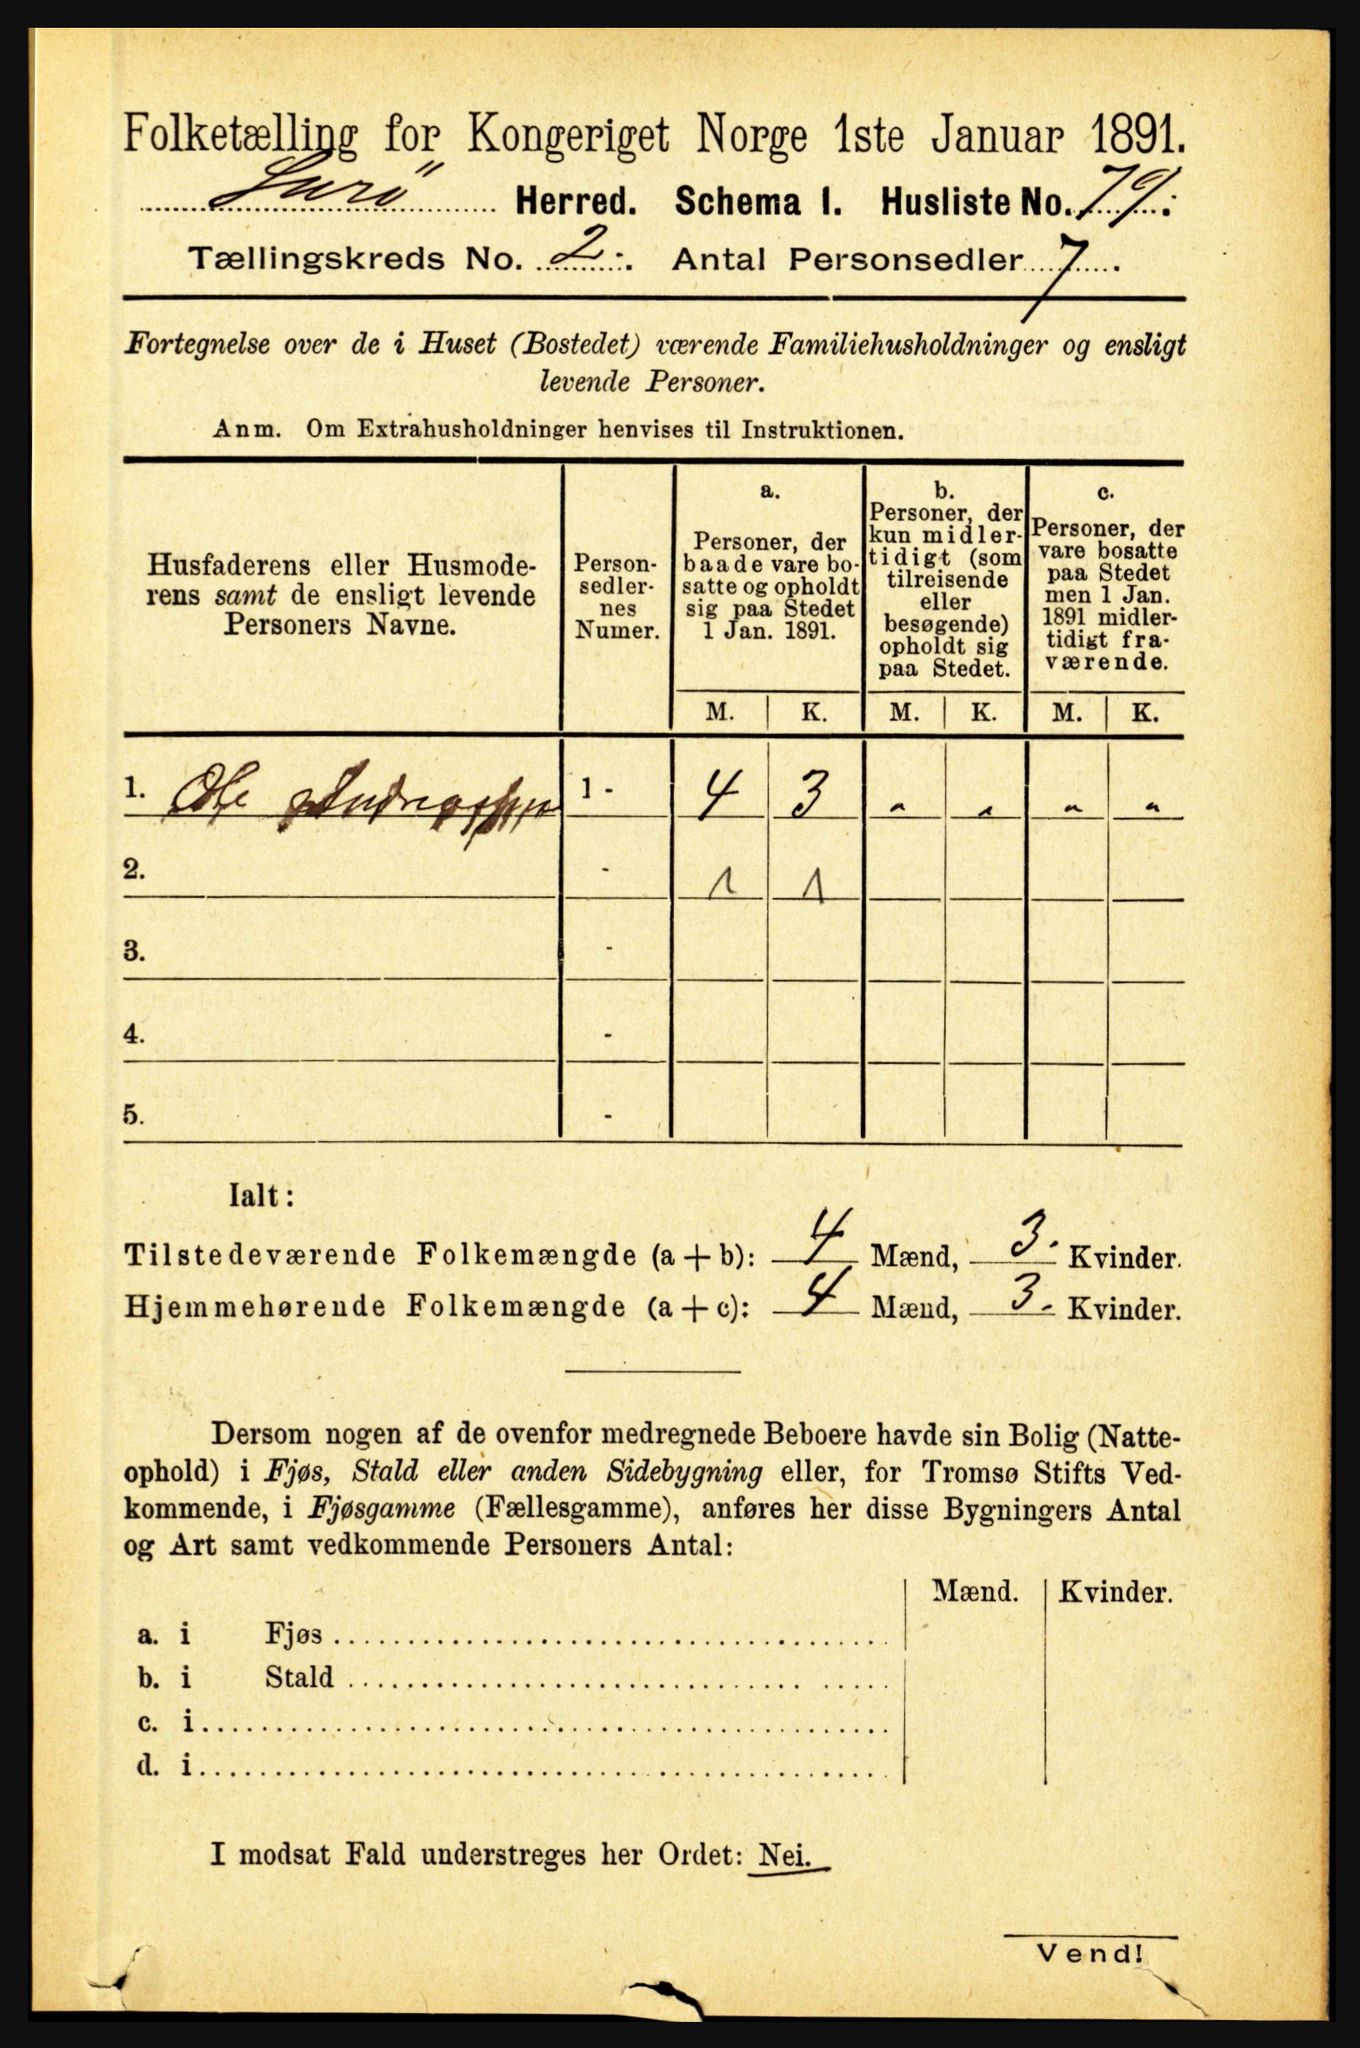 Folketælling for Kongeriget Norge 1ste Januar 1891.
Lurø Herred. Schema 1. Husliste No. 79.
Tællingskreds No. 2. Antal Personsedler 7.
Fortegnelse over de i Huset (Bostedet) værende Familiehusholdninger og ensligt
levende Personer.
Anm. Om Extrahusholdninger henvises til Instruktionen.
Husfaderens eller Husmode-
rens samt de ensligt levende
Personers Navne.
Person-
sedler-
nes
Numer.
a.
Personer, der
baade vare bo-
satte og opholdt
sig paa Stedet
1 Jan. 1891.
b.
Personer, der
kun midler-
tidigt (som
tilreisende
eller
besøgende)
opholdt sig
paa Stedet.
c.
Personer, der
vare bosatte
paa Stedet
men 1 Jan.
1891 midler-
tidigt fra-
værende.
M. K. M. K. M. K.
1. Ole Andreassen 1 - 4 3 " " " "
2. - 1 1
3. -
4. -
5. -
Ialt:
Tilstedeværende Folkemængde (a + b): 4 Mænd, 3. Kvinder.
Hjemmehørende Folkemængde (a + c): 4 Mænd, 3. Kvinder.
Dersom nogen af de ovenfor medregnede Beboere havde sin Bolig (Natte-
ophold) i Fjøs, Stald eller anden Sidebygning eller, for Tromsø Stifts Ved-
kommende, i Fjøsgamme (Fællesgamme), anføres her disse Bygningers Antal
og Art samt vedkommende Personers Antal:
Mænd. Kvinder.
a. i Fjøs
b. i Stald
c. i
d. i
I modsat Fald understreges her Ordet: Nei.
Vend!